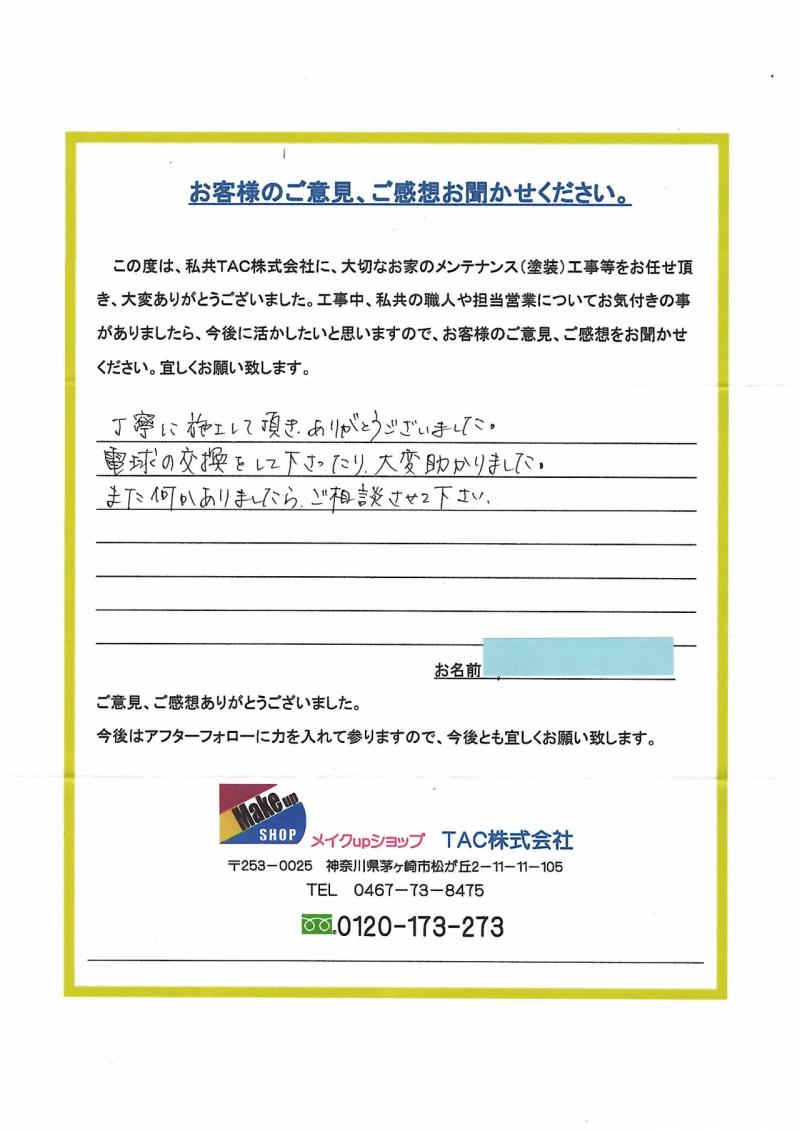 お客様のご意見、ご感想お聞かせください。
この度は、私共TAC株式会社に、大切なお家のメンテナンス(塗装)工事等をお任せ頂
き、大変ありがとうございました。工事中、私共の職人や担当営業についてお気付きの事
がありましたら、今後に活かしたいと思いますので、お客様のご意見、ご感想をお聞かせ
ください。宜しくお願い致します。
丁寧に施工して頂き、ありがとうございました。
電球の交換をして下さったり、大変助かりました。
また何かありましたら、ご相談させて下さい。
お名前
ご意見、ご感想ありがとうございました。
今後はアフターフォローに力を入れて参りますので、今後とも宜しくお願い致します。
Make up
SHOP
メイクupショップ TAC株式会社
〒253-0025 神奈川県茅ヶ崎市松が丘2-11-11-105
TEL 0467-73-8475
0120-173-273